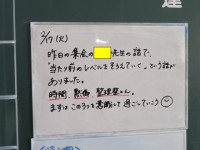 2/17(火)
昨日の集会の 先生の話で、
"当たり前のレベルをそろえていく"という話が
ありました。
時間、熱働、整理整とん。
まずはこの3つを意識して過ごしていこう